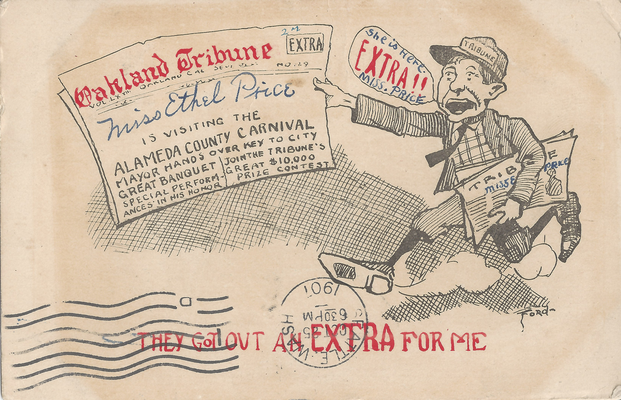 Oakland Tribune
2nd EXTRA
OAKLAND CAL
Miss Ethel Price
IS VISITING THE
ALAMEDA COUNTY CARNIVAL
MAYOR HANDS OVER KEY TO CITY
GREAT BANQUET
SPECIAL PERFORM-
ANCES IN HIS HONOR
JOIN THE TRIBUNE'S
GREAT $10,000
PRIZE CONTEST
She is Here.
EXTRA!!
MISS. PRICE
TRIBUNE
TRIBUNE
MISS E
PRICE
Ford-
SEATTLE, WASH
6 30 PM
1907
D
THEY GOT OUT AN EXTRA FOR ME